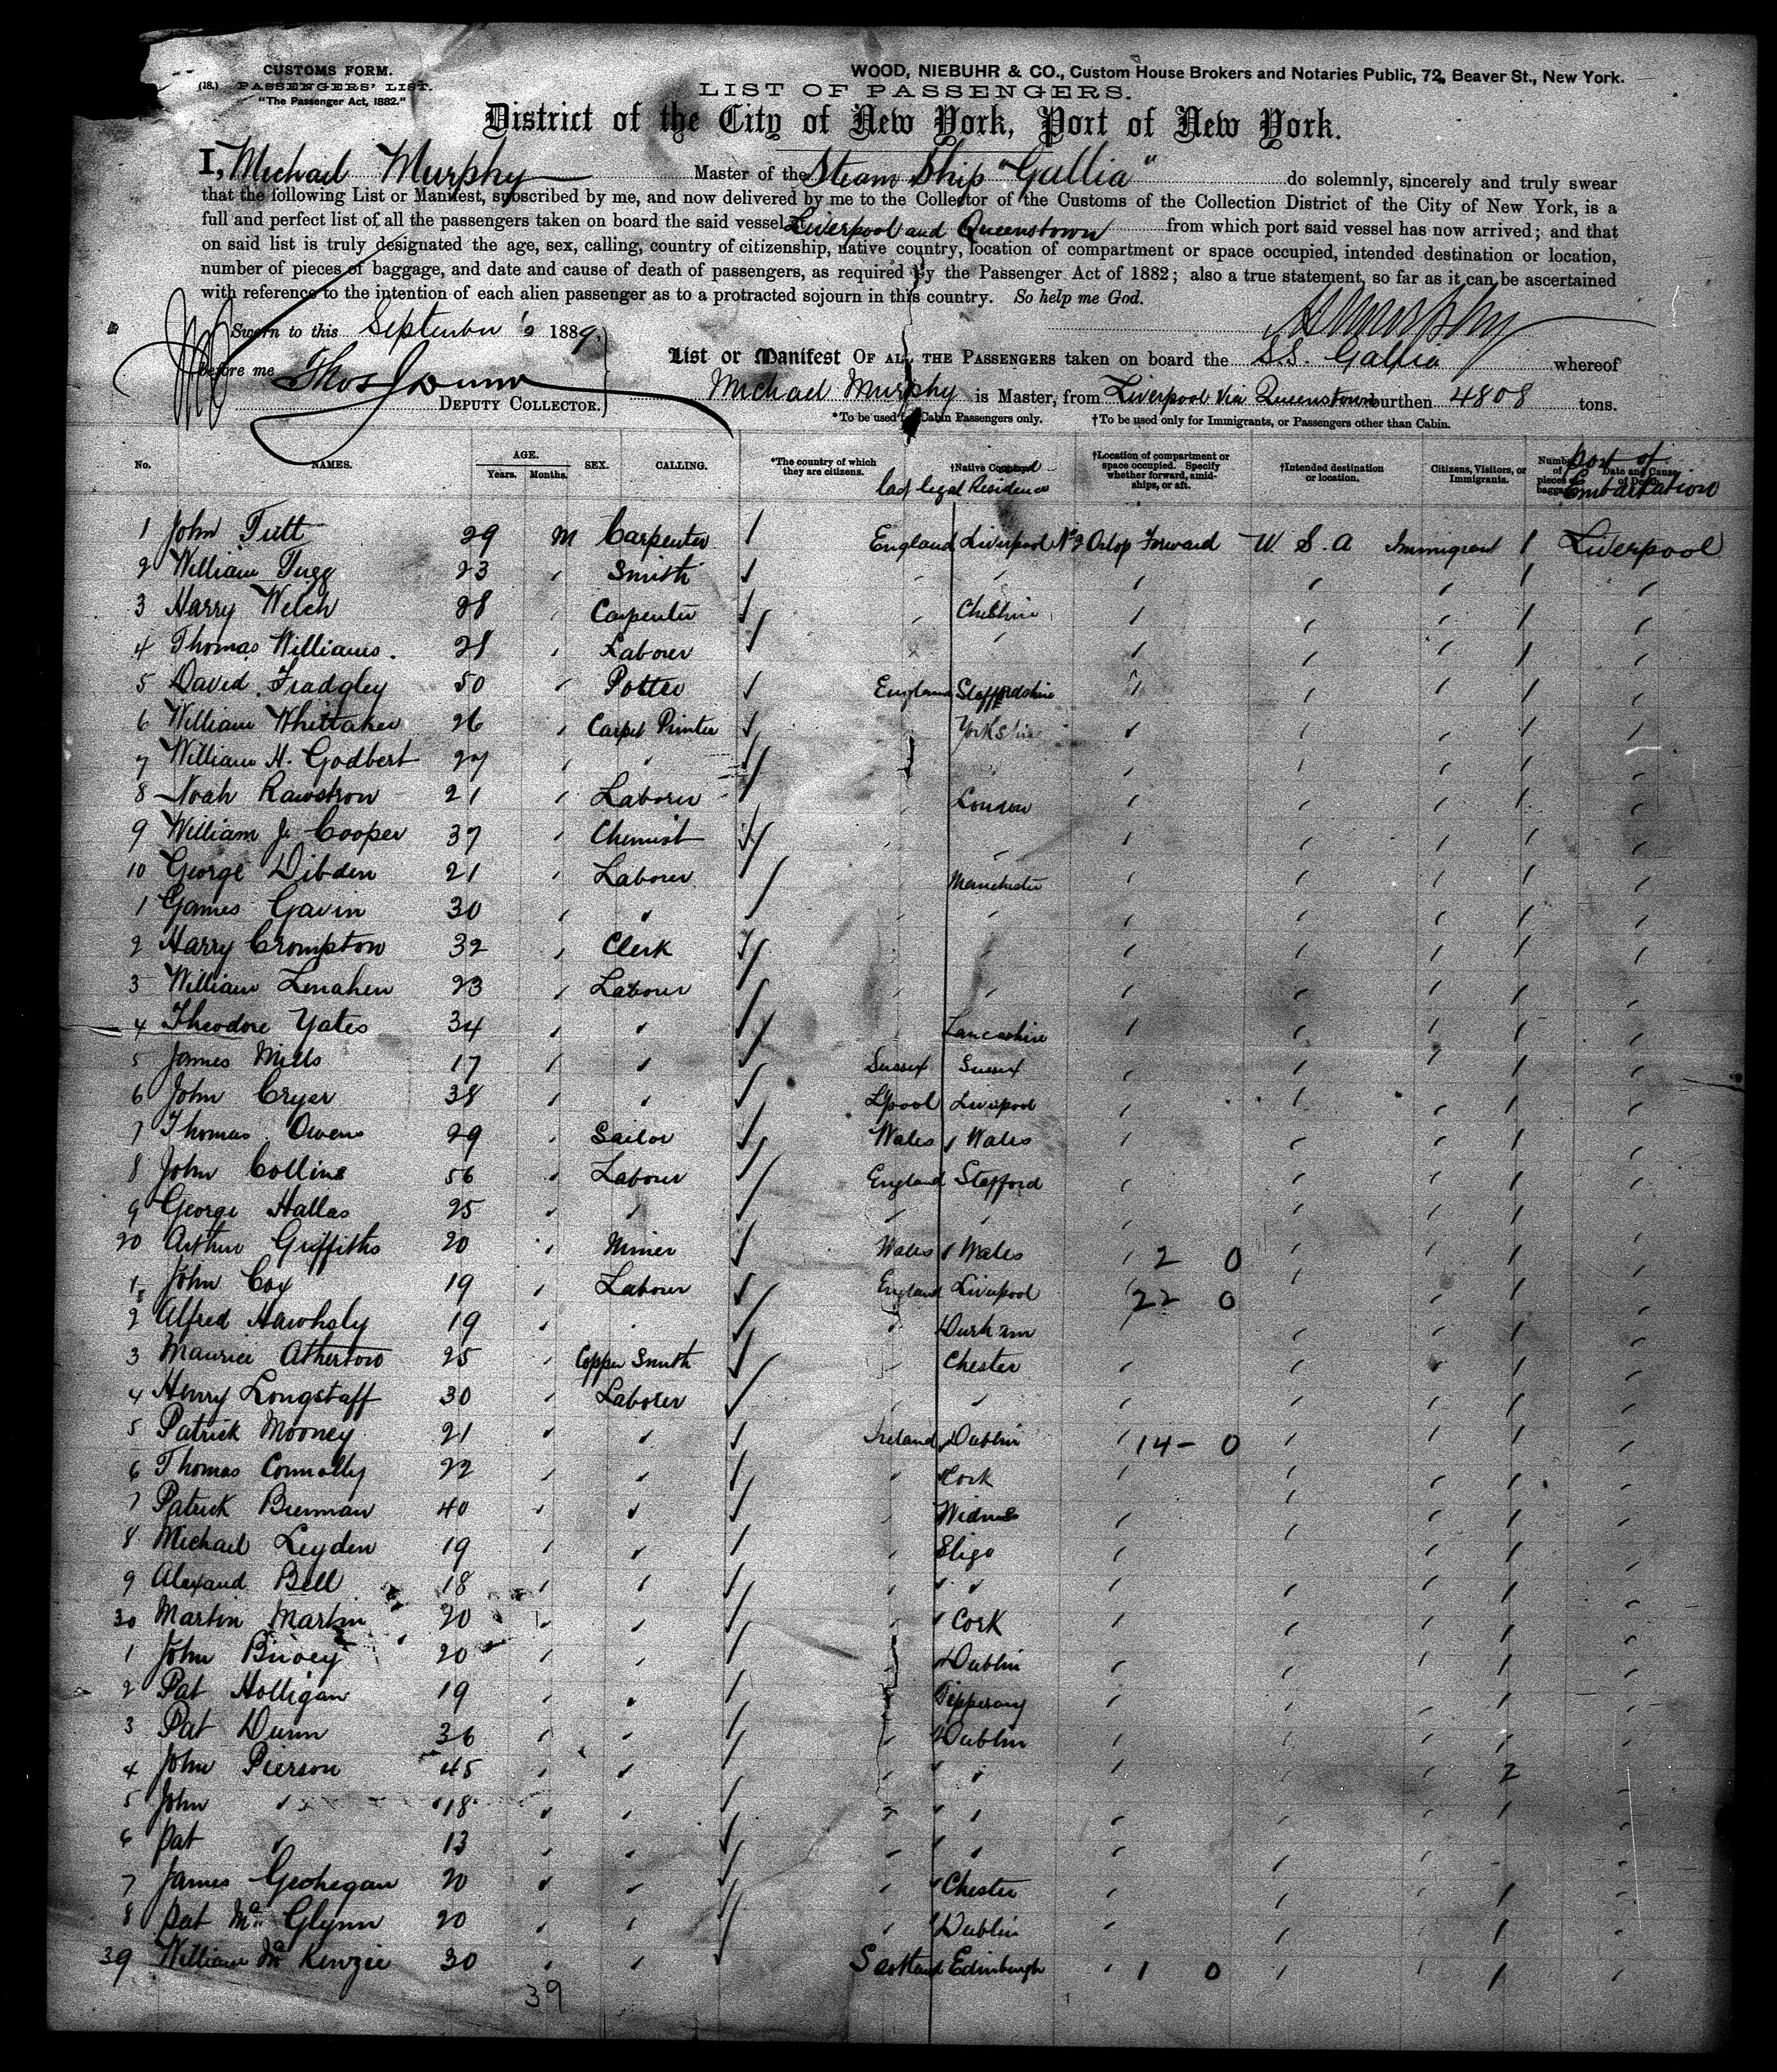 CUSTOMS FORM.
(18.) PASSENGERS' LIST.
"The Passenger Act, 1882."
WOOD, NIEBUHR & CO., Custom House Brokers and Notaries Public, 72, Beaver St., New York.
LIST OF PASSENGERS.
District of the City of New York, Port of New York.
I, Michael Murphy Master of the Steam Ship "Gallia" do solemnly, sincerely and truly swear
that the following List or Manifest, subscribed by me, and now delivered by me to the Collector of the Customs of the Collection District of the City of New York, is a
full and perfect list of all the passengers taken on board the said vessel Liverpool and Queenstown from which port said vessel has now arrived; and that
on said list is truly designated the age, sex, calling, country of citizenship, native country, location of compartment or space occupied, intended destination or location,
number of pieces of baggage, and date and cause of death of passengers, as required by the Passenger Act of 1882; also a true statement, so far as it can be ascertained
with reference to the intention of each alien passenger as to a protracted sojourn in this country. So help me God.
Sworn to this September 1889.
Murphy
before me Thos
DEPUTY COLLECTOR.
List or Manifest OF ALL THE PASSENGERS taken on board the S.S. Gallia whereof
Michael Murphy is Master, from Liverpool Via Queenstown burthen 4808 tons.
*To be used for Cabin Passengers only. †To be used only for Immigrants, or Passengers other than Cabin.
No. NAMES. AGE. Years. Months. SEX. CALLING. *The country of which they are citizens. †Native Country last legal Residence †Location of compartment or space occupied. Specify whether forward, amidships, or aft. †Intended destination or location. Citizens, Visitors, or Immigrants. Number of pieces of baggage Date and Cause of Death. Port of Embarkation
1 John Tutt 29 M Carpenter England Liverpool No 2 Orlop Forward U.S.A Immigrant 1 Liverpool
2 William Tugg 23 " Smith " " " " " 1 "
3 Harry Welch 28 " Carpenter " Cheshire " " " 1 "
4 Thomas Williams. 28 " Laborer " " " " " 1 "
5 David Fradgley 50 " Potter England Staffordshire " " " 1 "
6 William Whittaker 26 " Carpet Printer Yorkshire " " " 1 "
7 William H. Godbert 27 " " " " " " 1 "
8 Noah Rawstron 21 " Laborer " London " " " 1 "
9 William J. Cooper 37 " Chemist " " " " " 1 "
10 George Dibden 21 " Laborer Manchester " " " 1 "
1 James Gavin 30 " " " " " " " 1 "
2 Harry Crompton 32 " Clerk " " " " " 1 "
3 William Lenahen 23 " Laborer " " " " " 1 "
4 Theodore Yates 34 " " " Lancashire " " " 1 "
5 James Mills 17 " " Sussex Sussex " " " 1 "
6 John Cryer 38 " " Lpool Liverpool " " " 1 "
7 Thomas Owens 29 " Sailor Wales Wales " " " 1 "
8 John Collins 56 " Laborer England Stafford " " " 1 "
9 George Hallas 25 " " " " " " " 1 "
20 Arthur Griffiths 20 " Miner Wales Wales " 2 0 " " 1 "
1 John Cox 19 " Laborer England Liverpool " 22 0 " " 1 "
2 Alfred 19 " " " Durham " " " 1 "
3 Maurice Atherton 25 " Copper Smith " Chester " " " 1 "
4 Henry Longstaff 30 " Laborer " " " " " 1 "
5 Patrick Mooney 21 " " Ireland Dublin " 14 - 0 " " 1 "
6 Thomas Connolly 22 " " " Cork " " " 1 "
7 Patrick Brennan 40 " " " Widnes " " " 1 "
8 Michael Leyden 19 " " " Sligo " " " 1 "
9 Alexand Bell 18 " " " " " " " 1 "
30 Martin Martin 20 " " " Cork " " " 1 "
1 John 20 " " Dublin " " " 1 "
2 Pat Holligan 19 " " Tipperary " " " 1 "
3 Pat Dunn 36 " " Dublin " " " 1 "
4 John Pierson 45 " " " " " " " 2 "
5 John " 18 " " " " " " " 1 "
6 Pat " 13 " " " " " " "
7 James Geohegan 20 " " " Chester " " " 1 "
8 Pat Mc Glynn 20 " " " Dublin " " " 1 "
39 William Mc Kenzie 30 " " Scotland Edinburgh " 1 0 " " 1 "
39